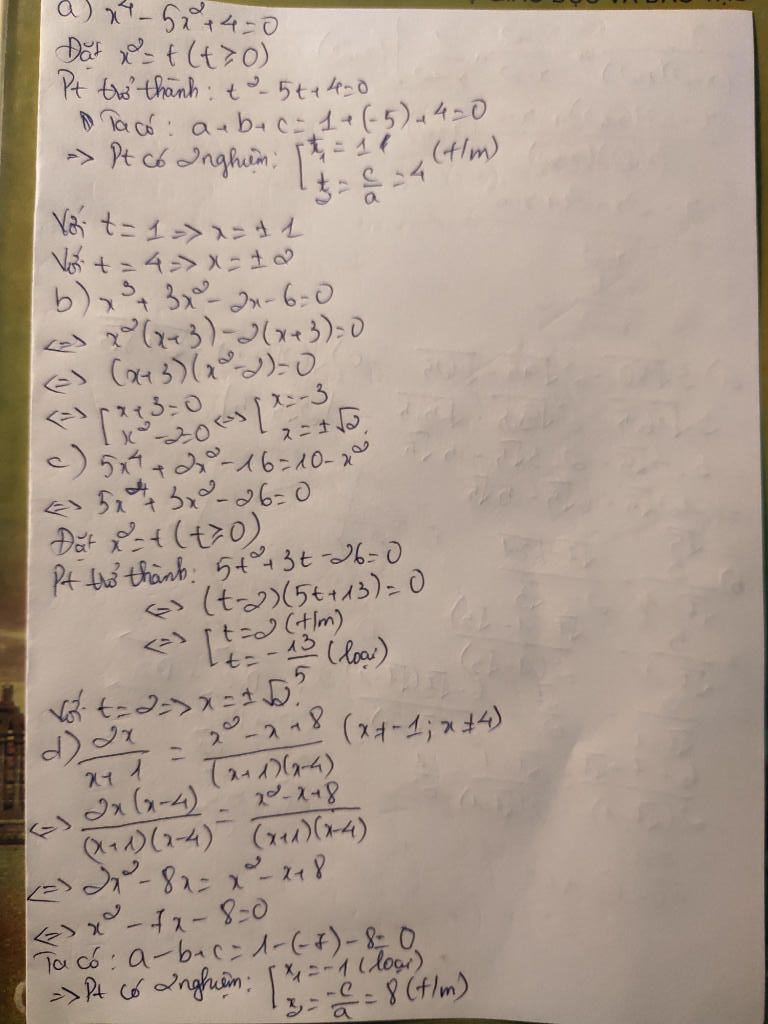 a) x⁴ - 5x² + 4 = 0
Đặt x² = t (t ≥ 0)
Pt trở thành: t² - 5t + 4 = 0
Ta có: a + b + c = 1 + (-5) + 4 = 0
=> Pt có 2 nghiệm: [ t₁ = 1
t₂ = c/a = 4 (t/m)
Với t = 1 => x = ± 1
Với t = 4 => x = ± 2
b) x³ + 3x² - 2x - 6 = 0
<=> x²(x+3) - 2(x+3) = 0
<=> (x+3)(x² - 2) = 0
<=> [ x + 3 = 0 <=> [ x = -3
x² - 2 = 0 x = ± √2.
c) 5x⁴ + 2x² - 16 = 10 - x²
<=> 5x⁴ + 3x² - 26 = 0
Đặt x² = t (t ≥ 0)
Pt trở thành: 5t² + 3t - 26 = 0
<=> (t - 2)(5t + 13) = 0
<=> [ t = 2 (t/m)
t = -13/5 (loại)
Với t = 2 => x = ± √2.
d) 2x/(x+1) = (x² - x + 8)/((x+1)(x-4)) (x ≠ -1; x ≠ 4)
<=> 2x(x-4)/((x+1)(x-4)) = (x² - x + 8)/((x+1)(x-4))
<=> 2x² - 8x = x² - x + 8
<=> x² - 7x - 8 = 0
Ta có: a - b + c = 1 - (-7) - 8 = 0
=> Pt có 2 nghiệm: [ x₁ = -1 (loại)
x₂ = -c/a = 8 (t/m)